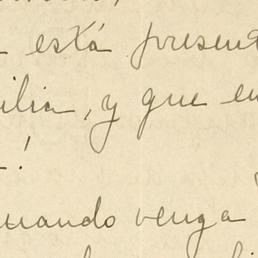 está present
ilia, y que en
!
uando venga